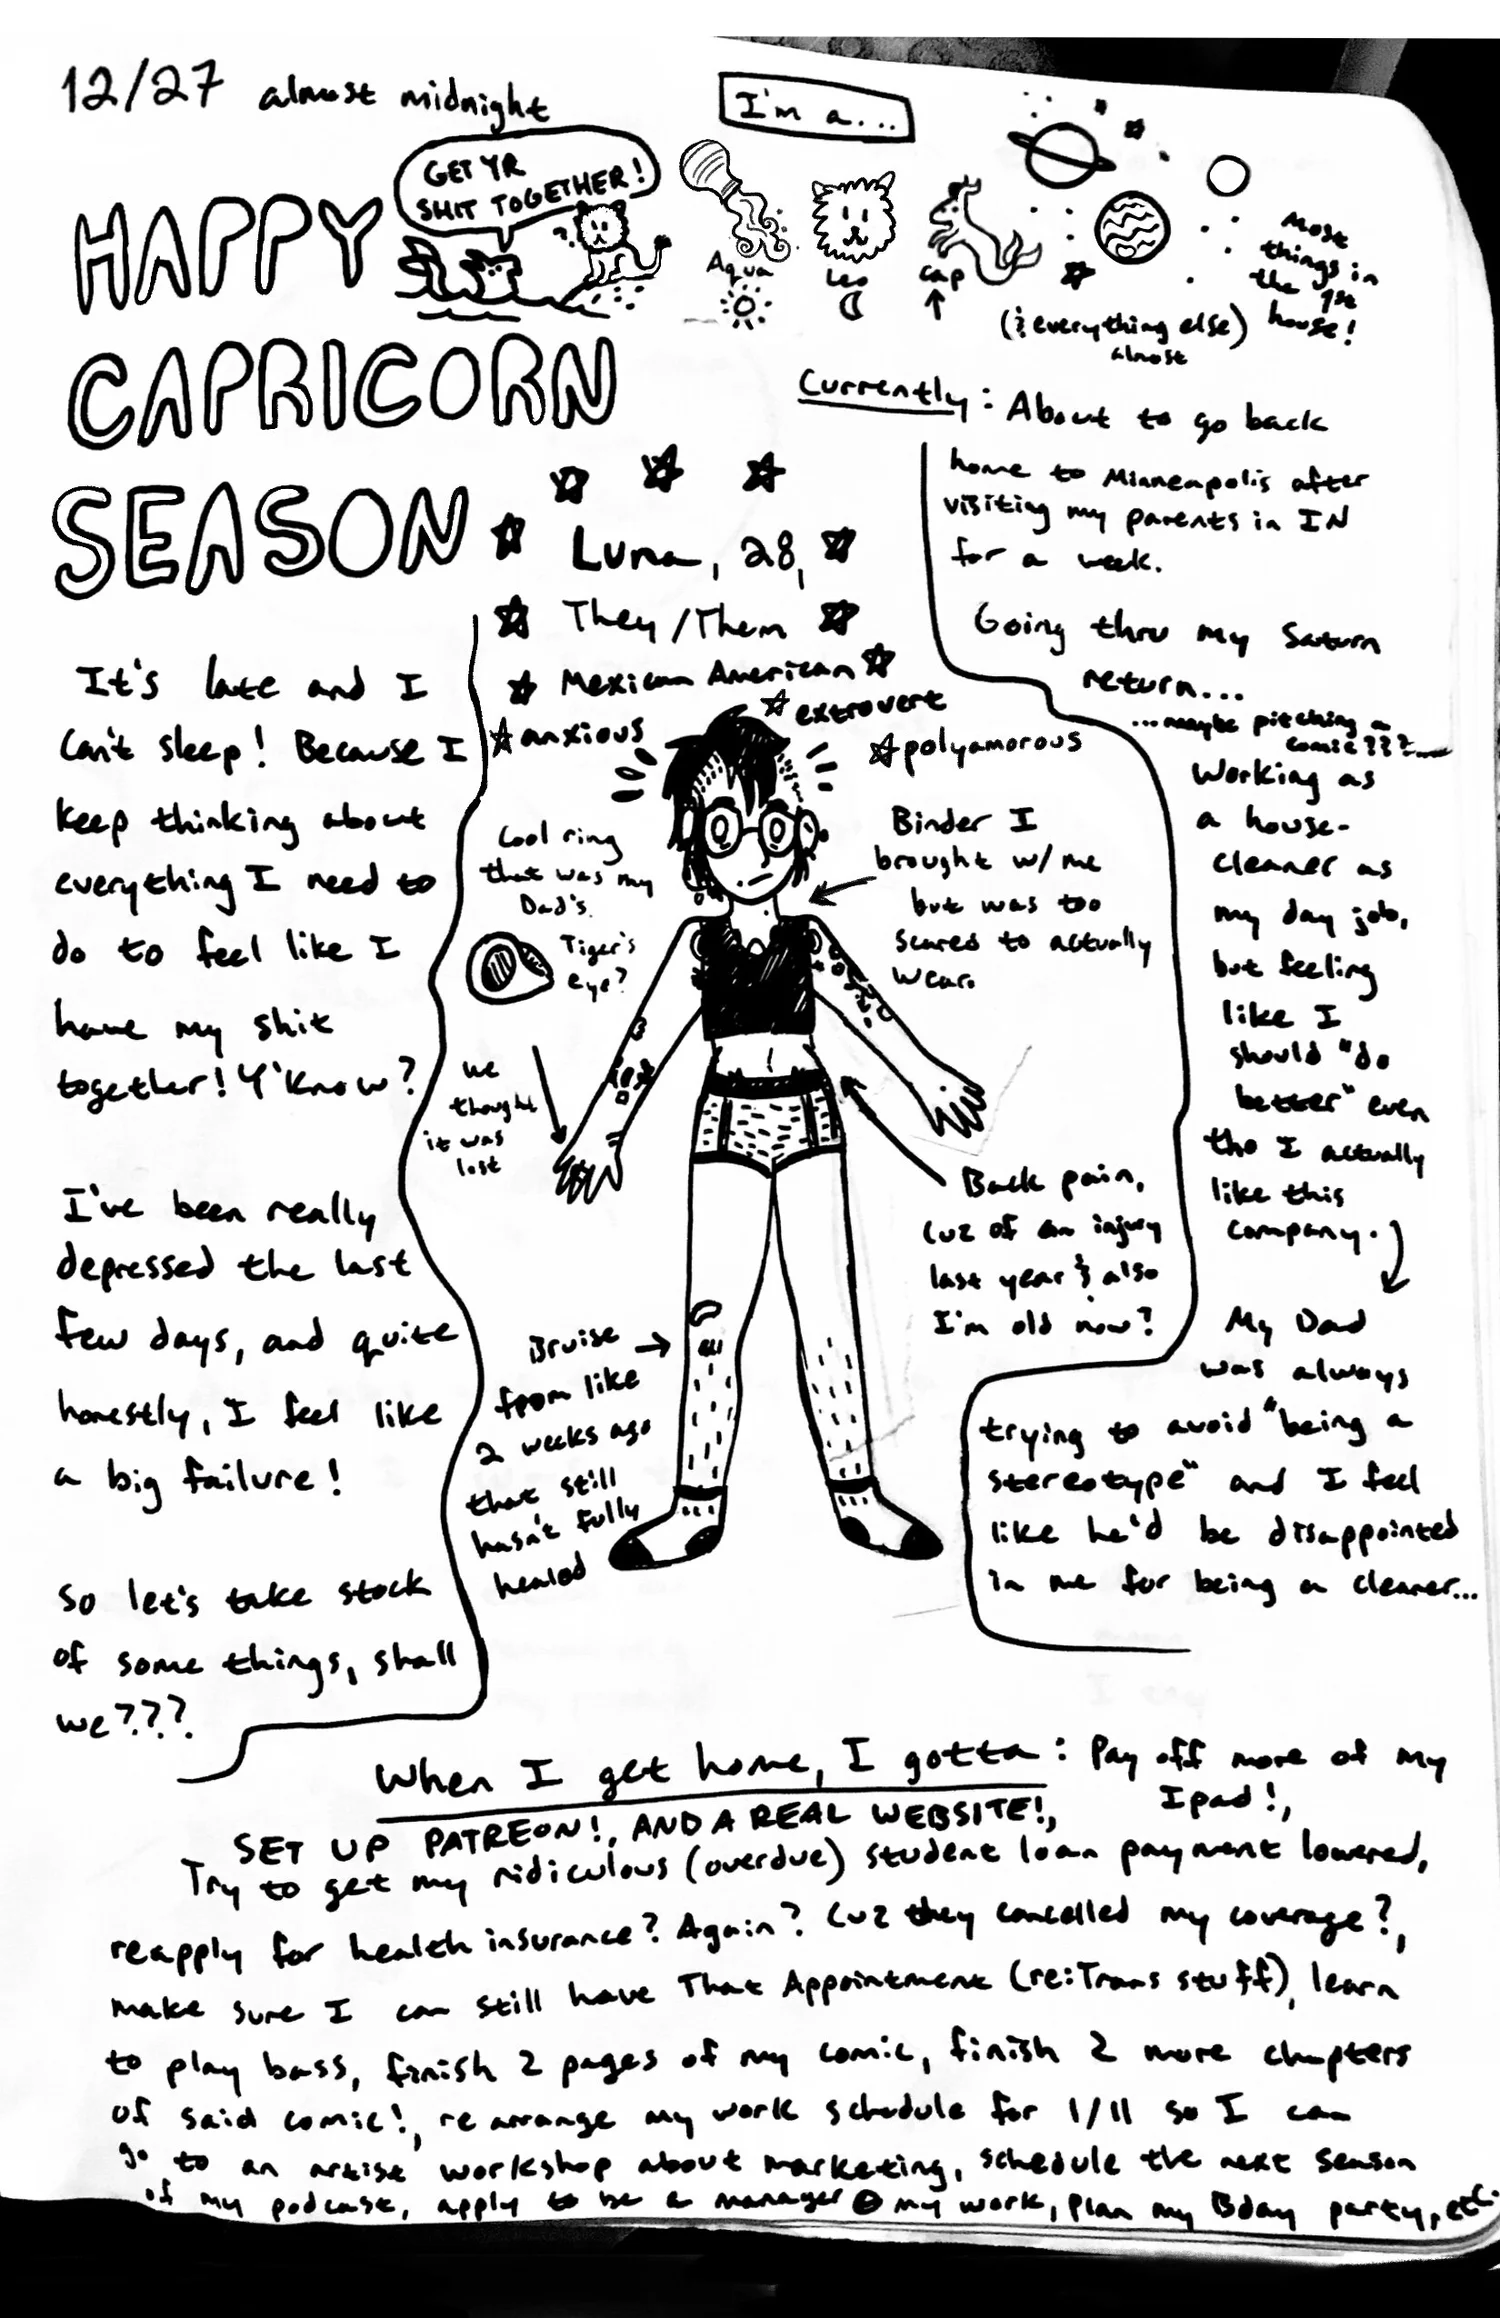 12/27 almost midnight
HAPPY
CAPRICORN
SEASON
GET YR
SHIT TOGETHER!
?
I'm a...
Aqua
Leo
Cap
(& everything else)
almost
Most
things in
the 1st
house!
Currently: About to go back
home to Minneapolis after
visiting my parents in IN
for a week.
Going thru my Saturn
return...
...maybe pitching a
comic???...
Working as
a house-
cleaner as
my day job,
but feeling
like I
should "do
better" even
tho I actually
like this
company.
My Dad
was always
trying to avoid "being a
stereotype" and I feel
like he'd be disappointed
in me for being a cleaner...
Luna, 28,
They/Them
Mexican American
anxious
extrovert
polyamorous
It's late and I
can't sleep! Because I
keep thinking about
everything I need to
do to feel like I
have my shit
together! Y'know?
I've been really
depressed the last
few days, and quite
honestly, I feel like
a big failure!
So let's take stock
of some things, shall
we???
Cool ring
that was my
Dad's.
Tiger's
eye?
we
thought
it was
lost
Binder I
brought w/ me
but was too
scared to actually
wear.
Back pain,
cuz of an injury
last year & also
I'm old now?
Bruise
from like
2 weeks ago
that still
hasn't fully
healed
When I get home, I gotta: Pay off more of my
Ipad!,
SET UP PATREON!, AND A REAL WEBSITE!,
Try to get my ridiculous (overdue) student loan payment lowered,
reapply for health insurance? Again? Cuz they cancelled my coverage?,
make sure I can still have That Appointment (re:Trans stuff), learn
to play bass, finish 2 pages of my comic, finish 2 more chapters
of said comic!, rearrange my work schedule for 1/11 so I can
go to an artist workshop about marketing, schedule the next season
of my podcast, apply to be a manager @ my work, plan my Bday party, etc.